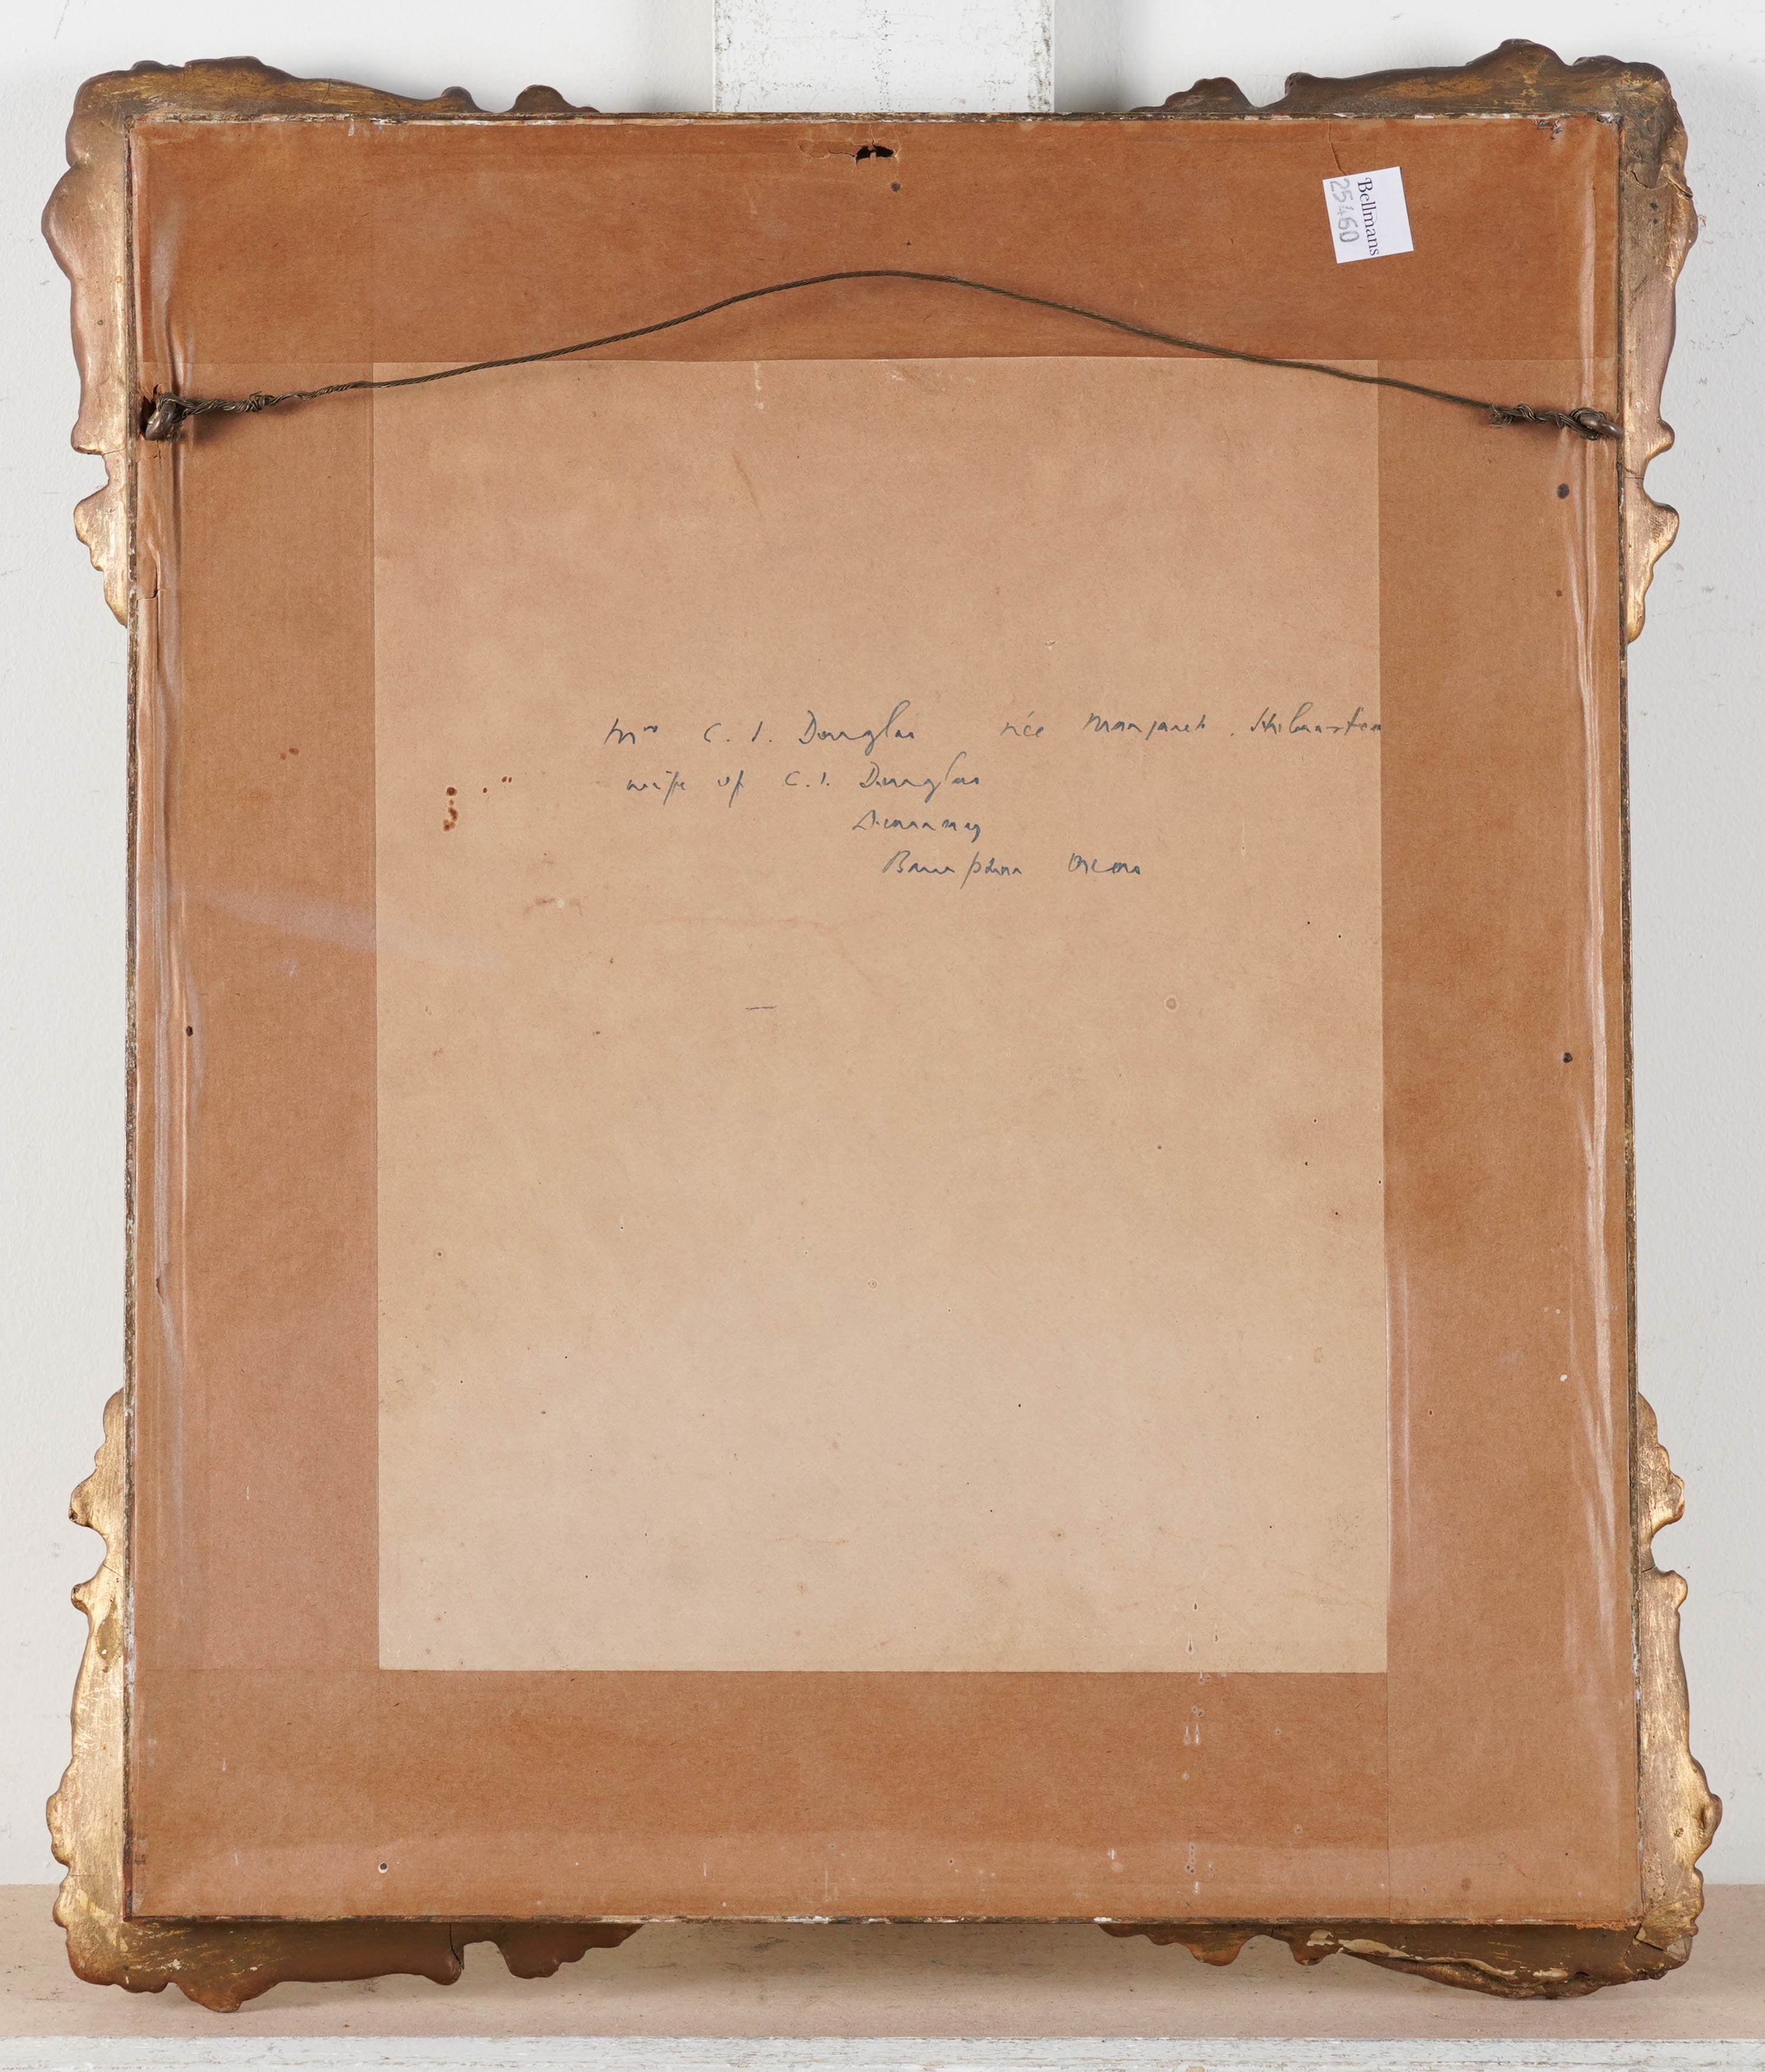 Bellmans
25460
Mrs C. I. Douglas née Margaret
wife of C. I. Douglas
Bampton Oxon